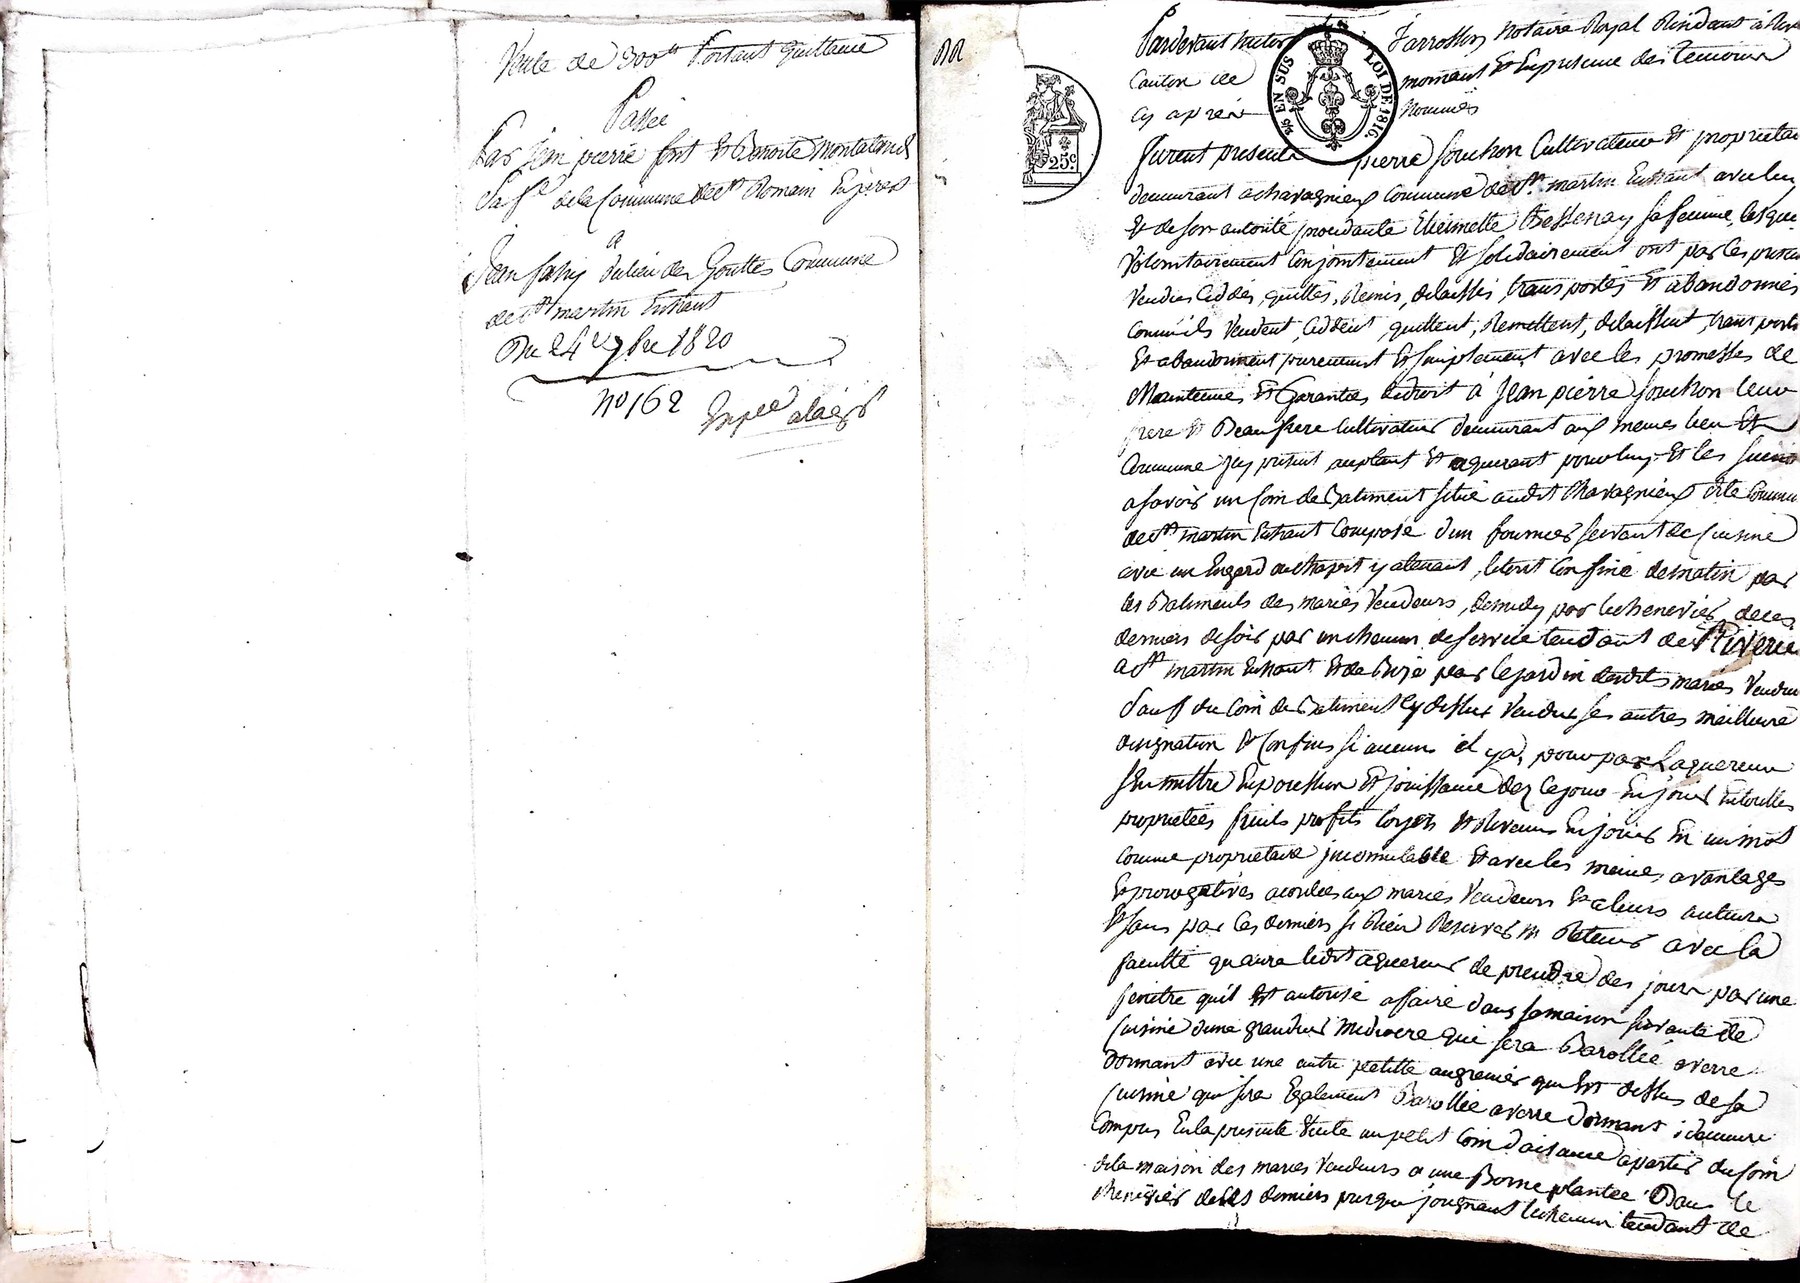 Vente de 300# Portant quittance
Passée
Par Jean pierre font et Benoite montaland
Sa fe de la Commune de St Romain En jarest
a
Jean fahy du lieu des Gouttes, Commune
de St martin Enhaut
Du 24 9bre 1820
No 162
Exped
Pardevant notaire Royal Résidant à
Canton de mornant Et En presence des temoins
cy après Nommés
furent presents pierre souchon Cultivateur Et proprietaire
demeurant a chavagnieux commune de St martin Enhaut avec luy
Et de son autorité procedante Etiennette Bessenay sa femme, lesquels
volontairement Conjointement Et solidairement ont par ces presentes
vendus Céddés, quittés, Remis, délaissés, transportés Et abandonnés
comm'ils vendent, Céddent, quittent, Remettent, délaissent, transportent
Et abandonnent purement Et simplement avec les promesses de
Maintenue Et Garantie de droit à Jean pierre souchon leur
frere Et Beau frere Cultivateur demeurant aux memes lieu Et
Commune jcy présent acceptant Et aquerant pour luy Et les siens
asavoir un Coin de Batiment situé audit chavagnieux dite Commune
de St martin Enhaut Composé d'un fournier servant de Cuisine
avec un Engard ou chapit y atenant, le tout Confiné de matin par
les Batiments des mariés Vendeurs, de midy par le chenevier de ces
derniers de soir par un chemin de service tendant de Riverie
a St martin Enhaut Et de Bize par le jardin desdits mariés Vendeurs
Sauf du Coin de Batiment cy dessus Vendu ses autres meilleure
désignation Et Confins si aucuns il y a, pour par l'aquereur
s'en mettre En possession Et jouissance dez ce jour En jouir En toutes
proprietées fruits profits loyers Et Revenus En jouir En un mot
comme proprietaire jncomutable Et avec les memes avantages
Et prerogatives acordées aux mariés Vendeurs Et a leurs auteurs
Et sans par ces derniers si Rien Reserver ni Retenir avec la
faculté qu'aura ledit aquereur de prendre des jours par une
fenêtre qu'il Est autorisé a faire dans sa maison servante de
Cuisine d'une grandeur mediocre qui sera Barollée a verre
dormant avec une autre petitte au grenier qui Est dessus de sa
Cuisine qui sera Egalement Barollée a verre dormant; demeure
Compris En la presente Vente un petit Coin d'aisance a partir du Coin
de la maison des mariés Vendeurs a une Borne plantée Dans le
chenevier de ces derniers jusque joignant le chemin tendant de
EN SUS LOI DE 1816.
25c